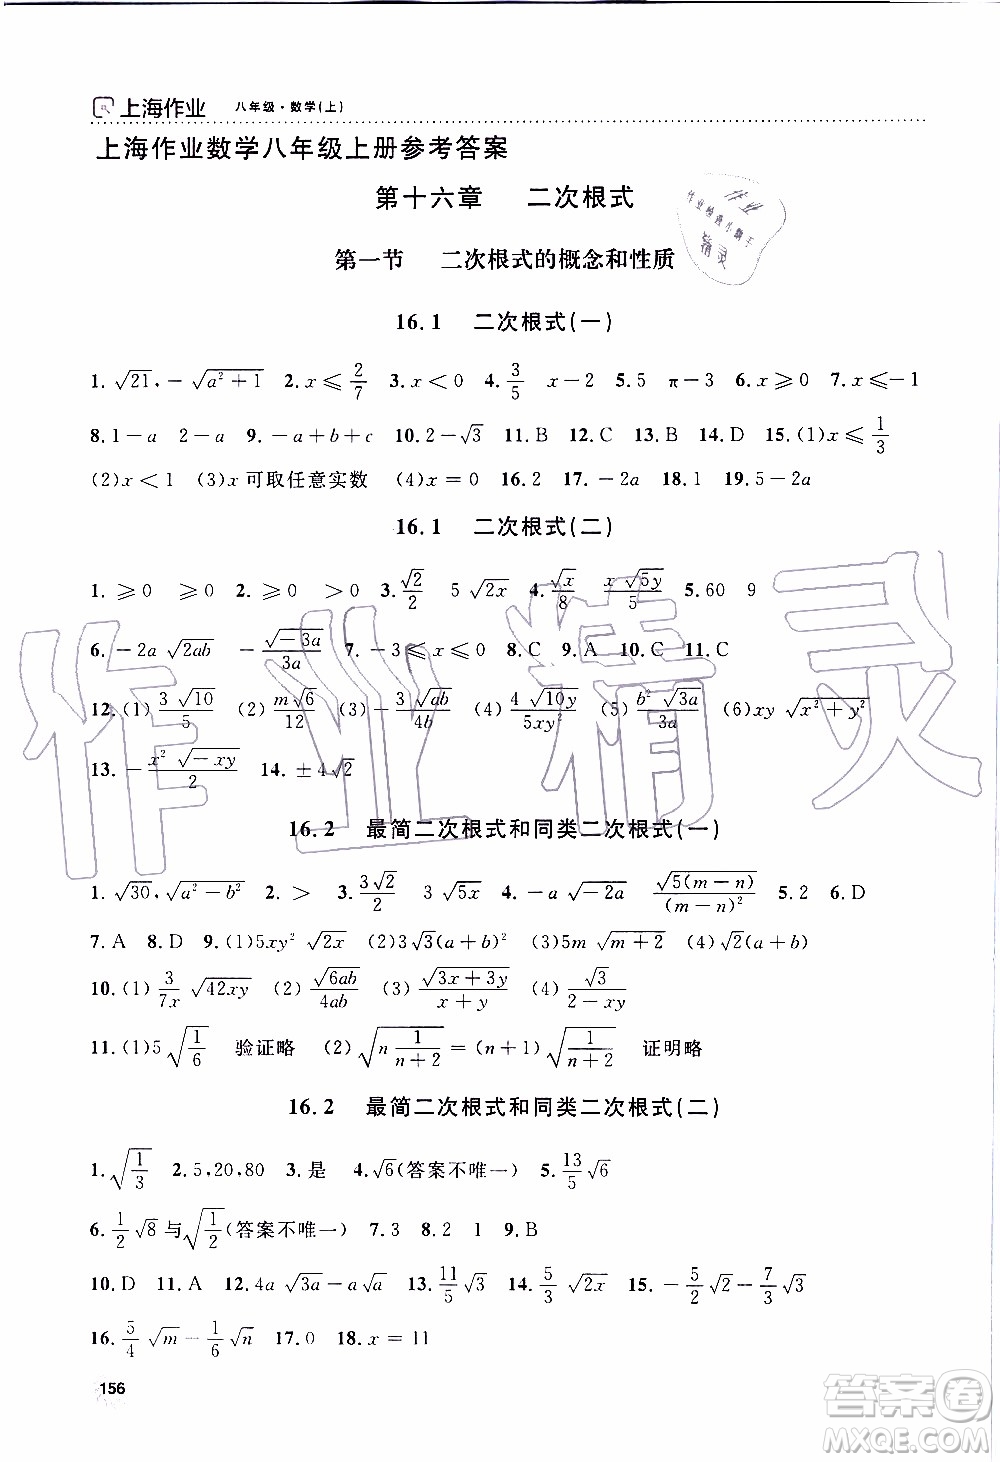 上海作业 八年级·数学(上)
上海作业数学八年级上册参考答案
第十六章 二次根式
第一节 二次根式的概念和性质
16.1 二次根式(一)
1.√21,-√(a²+1) 2.x≤2/7 3.x<0 4.3/5 x-2 5.5 π-3 6.x≥0 7.x≤-1
8.1-a 2-a 9.-a+b+c 10.2-√3 11.B 12.C 13.B 14.D 15.(1)x≤1/3
(2)x<1 (3)x可取任意实数 (4)x=0 16.2 17.-2a 18.1 19.5-2a
16.1 二次根式(二)
1.≥0 ≥0 2.≥0 >0 3.√2/2 5√(2x) 4.√x/8 x√(5y)/5 5.60 9
6.-2a√(2ab) -√(-3a)/(3a) 7.-3≤x≤0 8.C 9.A 10.C 11.C
12.(1)3√10/5 (2)m√6/12 (3)-3√(ab)/(4b) (4)4√(10y)/(5xy²) (5)b²√(3a)/(3a) (6)xy√(x²+y²)
13.-x²√(-xy)/2 14.±4√2
16.2 最简二次根式和同类二次根式(一)
1.√30,√(a²-b²) 2.> 3.3√2/2 3√(5x) 4.-a√(-2a) √(5(m-n))/(m-n)² 5.2 6.D
7.A 8.D 9.(1)5xy²√(2x) (2)3√3(a+b)² (3)5m√(m+2) (4)√2(a+b)
10.(1)3/(7x)√(42xy) (2)√(6ab)/(4ab) (3)√(3x+3y)/(x+y) (4)√3/(2-xy)
11.(1)5√(1/6) 验证略 (2)√(n 1/(n+2))=(n+1)√(1/(n+2)) 证明略
16.2 最简二次根式和同类二次根式(二)
1.√(1/3) 2.5,20,80 3.是 4.√6(答案不唯一) 5.13/5√6
6.1/2√8与√(1/2)(答案不唯一) 7.3 8.2 1 9.B
10.D 11.A 12.4a√(3a)-a√a 13.11/5√3 14.5/3√(2x) 15.-5/2√2-7/3√3
16.5/4√m-1/6√n 17.0 18.x=11
156
作业精灵
作业
作业检查小帮手
精灵
答案圈
MXQE.COM